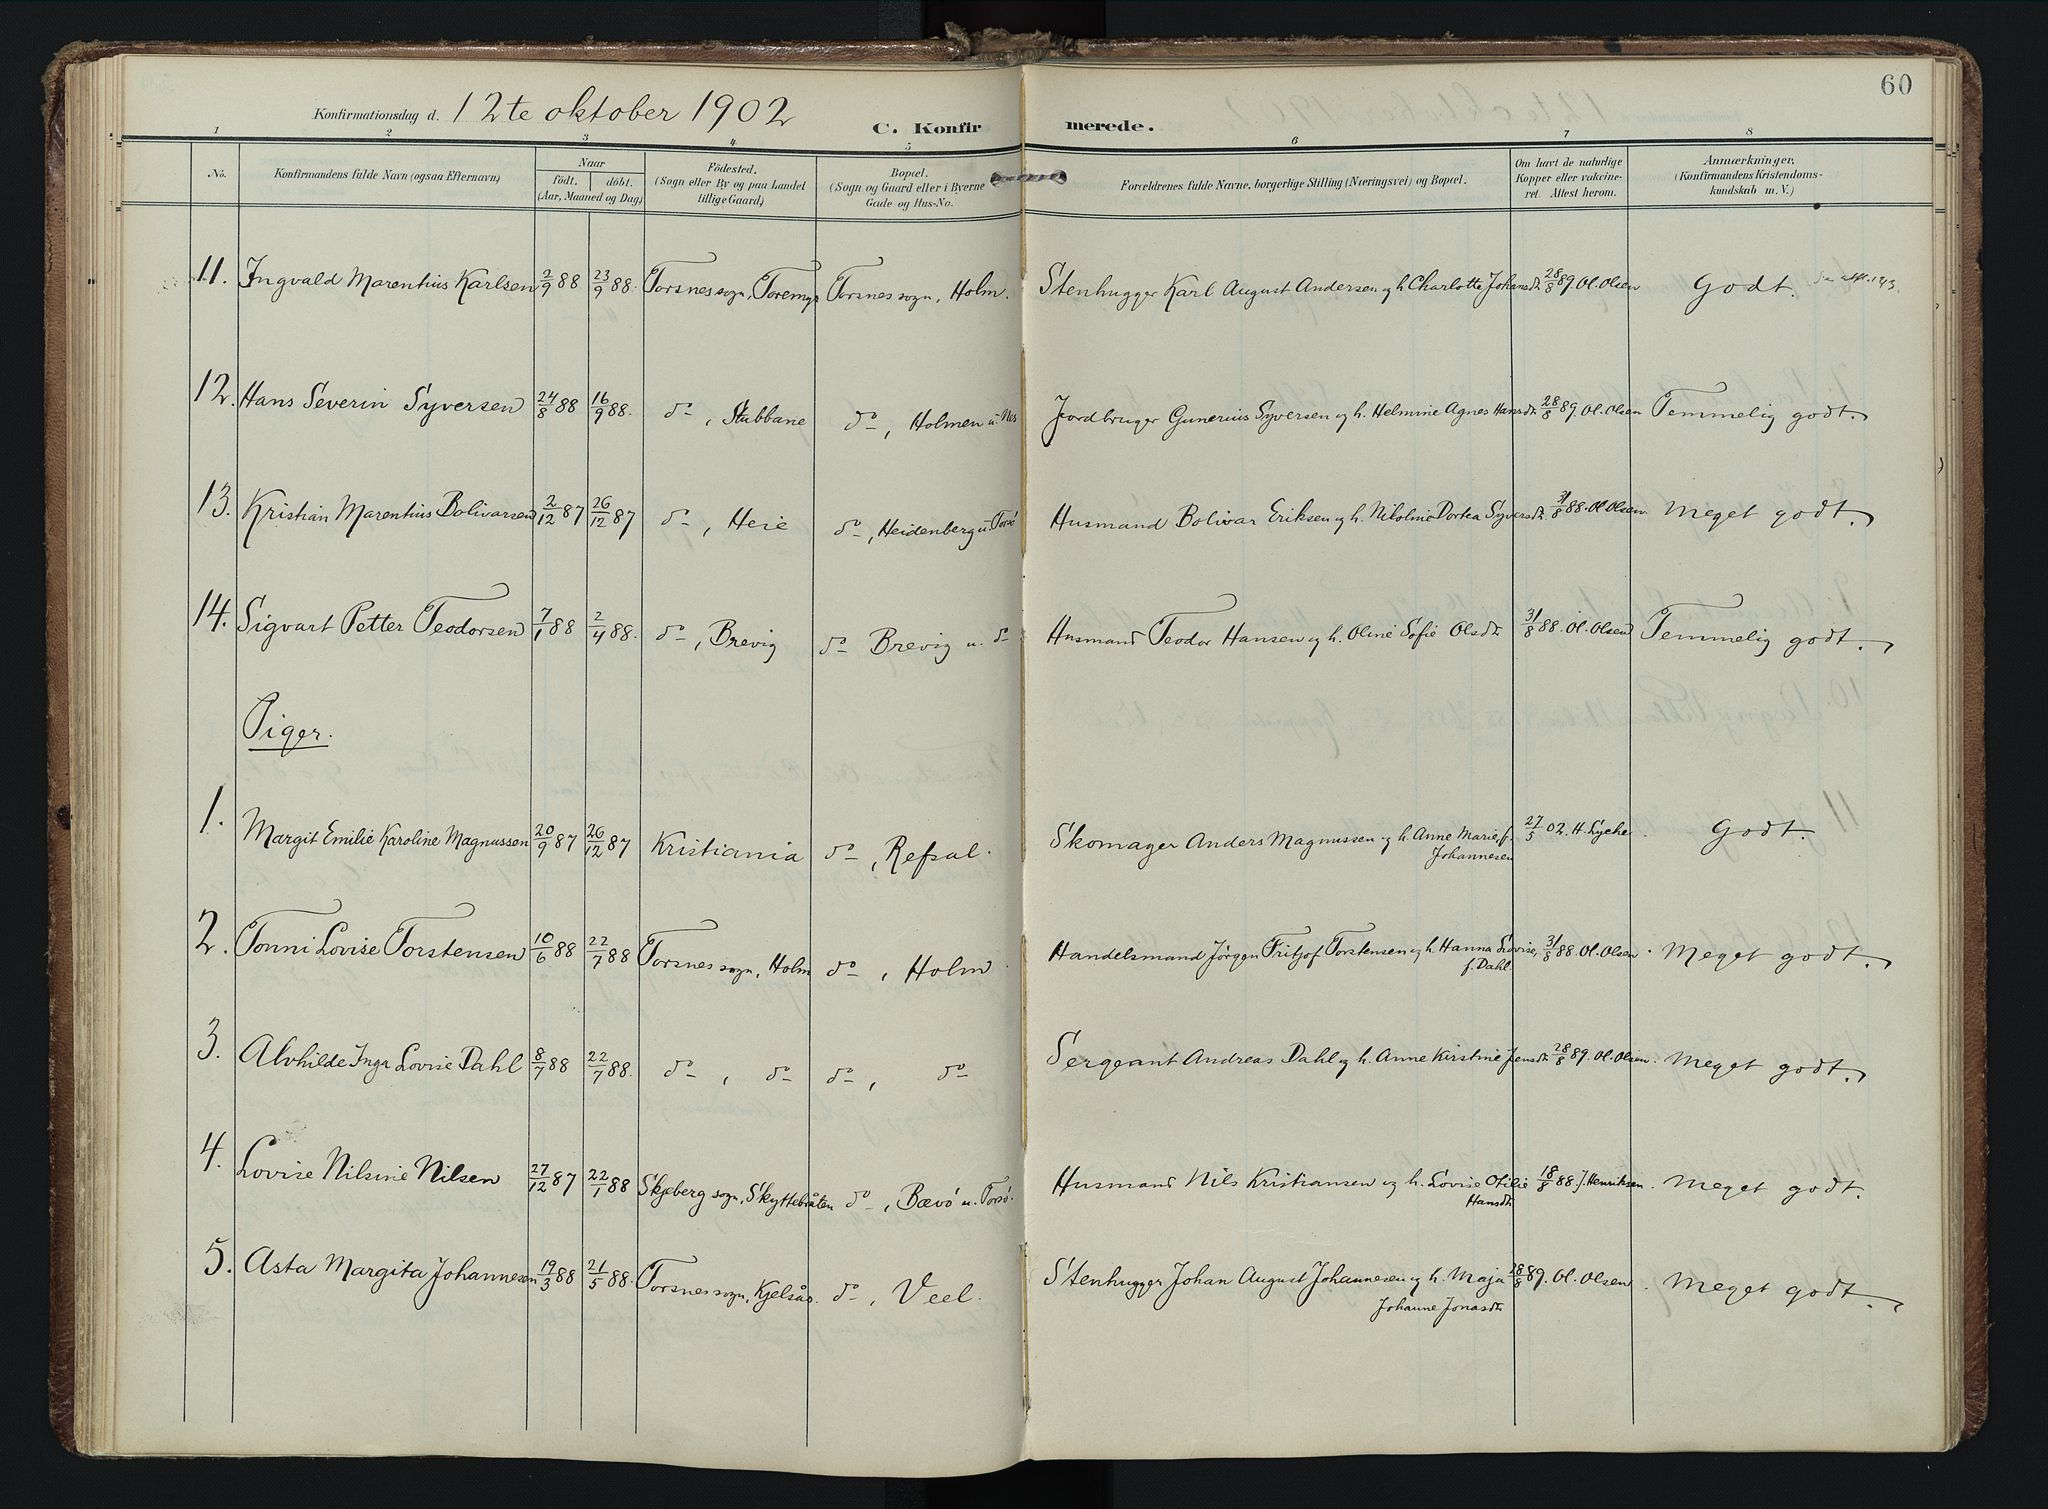 60
Konfirmationsdag d. 12te oktober 1902
C. Konfirmerede.
1 2 3 4 5 6 7 8
No. Konfirmandens fulde Navn (ogsaa Efternavn) Naar född. döbt. (Aar, Maaned og Dag) Födested. (Sogn eller By og paa Landet tillige Gaard) Bopæl. (Sogn og Gaard eller i Byerne Gade og Hus-No. Forældrenes fulde Navne, borgerlige Stilling (Næringsvei) og Bopæl. Om havt de naturlige Kopper eller vakcineret. Attest herom. Anmærkninger. (Konfirmandens Kristendomskundskab m. V.)
11. Ingvald Marenthius Karlsen 2/9 88 23/9 88. Torsnes sogn, Toremyr Torsnes sogn, Holm. Stenhugger Karl August Andersen og h. Charlotte Johansdt. 28/8 89. Ol. Olsen Godt.
12. Hans Severin Syversen 24/8 88 16/9 88. do, Stubbane do, Holmen u. Nes Jordbruger Gunerius Syversen og h. Helmine Agnes Hansdt. 28/8 89. Ol. Olsen Temmelig godt.
13. Kristian Marenthius Bolivarsen 2/12 87 26/12 87 do, Heie do, Heidenberg u. Torsö Husmand Bolivar Eriksen og h. Nikoline Dortea Syversdt. 31/8 88. Ol. Olsen. Meget godt.
14. Sigvart Petter Teodorsen 7/1 88 2/4 88. do, Brevig do Brevig u. do Husmand Teodor Hansen og h. Oline Sofie Olsdt. 31/8 88. Ol. Olsen Temmelig godt.
Piger.
1. Margit Emilie Karoline Magnussen 20/9 87 26/12 87 Kristiania do, Refsal. Skomager Anders Magnussen og h. Anne Marie, f. Johannesen 27/5 02. H. Lyche. Godt.
2. Tonni Lovise Torstensen 10/6 88 22/7 88 Torsnes sogn, Holm do, Holm Handelsmand Jörgen Fritjof Torstensen og h. Hanna Lovise, f. Dahl. 31/8 88. Ol. Olsen. Meget godt.
3. Alvhilde Inga Lovise Dahl 8/7 88 22/7 88. do, do do, do Sergeant Andreas Dahl og h. Anne Kirstine Jensdt. 28/8 89. Ol. Olsen. Meget godt.
4. Lovise Nilsine Nilsen 27/12 87 22/1 88 Skjeberg sogn, Skyttebråten do, Bævö u. Torsö. Husmand Nils Kristiansen og h. Lovise Otilie Hansdt. 18/8 88. J. Henriksen. Meget godt.
5. Asta Margita Johannesen 19/3 88 21/5 88. Torsnes sogn, Kjelsås. do, Veel. Stenhugger Johan August Johannesen og h. Maja Johanne Jonasdt. 28/8 89. Ol. Olsen. Meget godt.